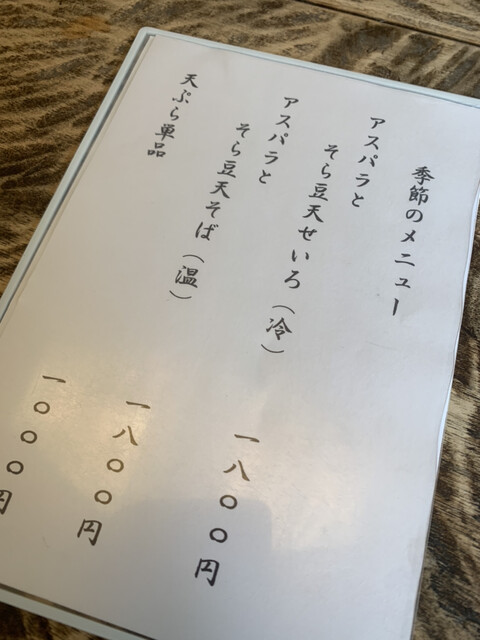 季節のメニュー
アスパラと
そら豆天せいろ（冷）
一八〇〇円
アスパラと
そら豆天そば（温）
一八〇〇円
天ぷら単品
一〇〇〇円